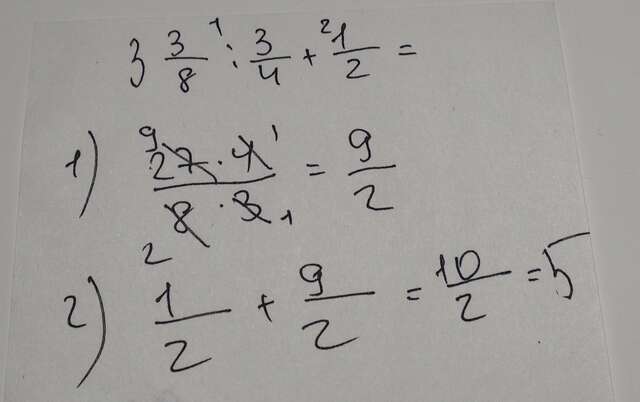 3 3/8 :¹ 3/4 +² 1/2 =
1) ⁹27 · 4¹ / ₂8 · 3₁ = 9/2
2) 1/2 + 9/2 = 10/2 = 5